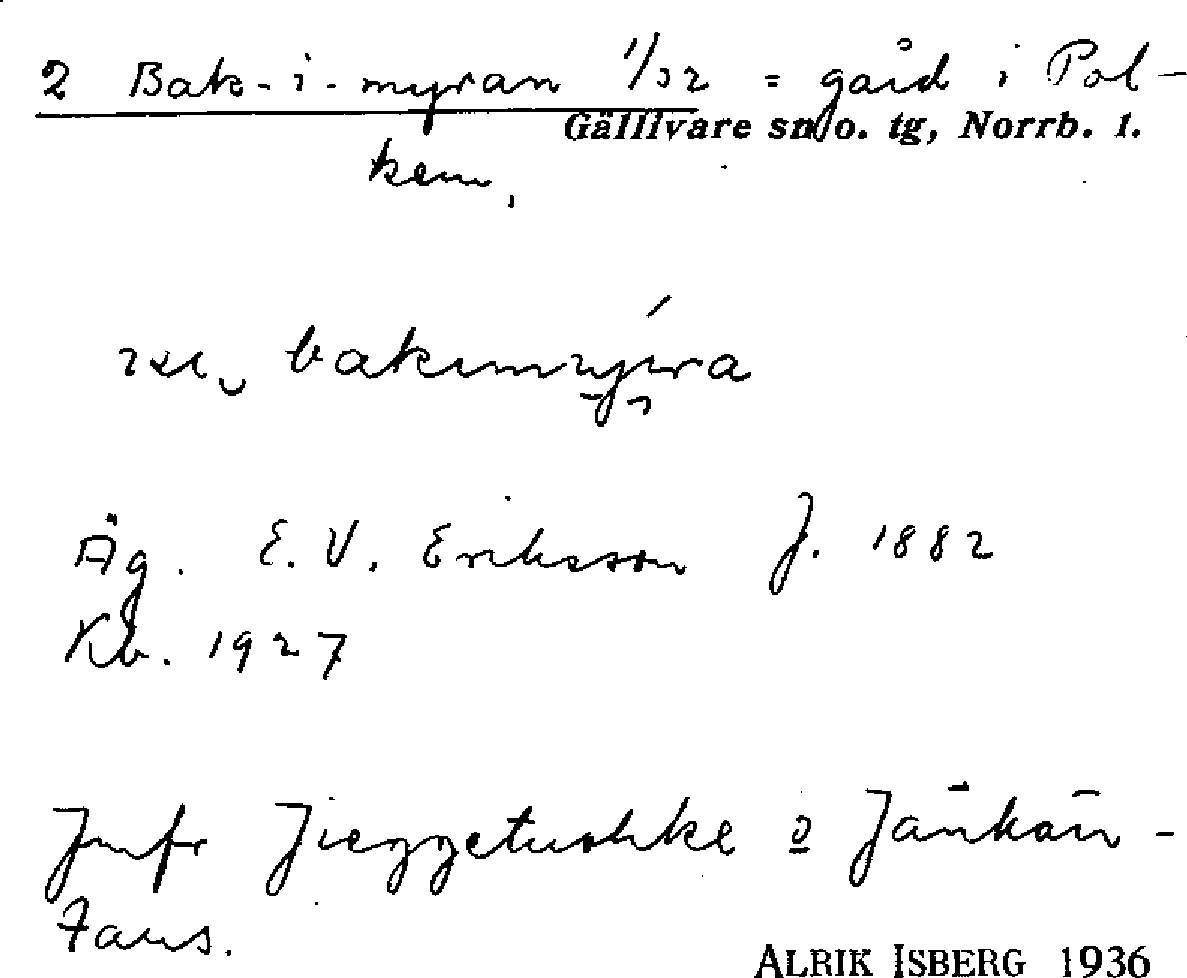 2 Bak-i-myran 1/32 = gård i Pol-
Gällivare sn o. tg, Norrb. l.
kem.
bakimyra
Äg. E. V. Eriksson f. 1882
Kb. 1927
Jmfr Jieggetuohke o Jänkän-
taus.
ALRIK ISBERG 1936